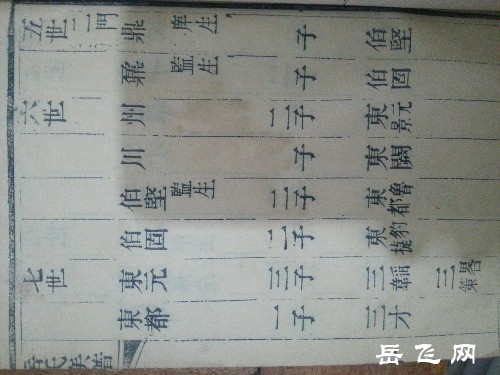 五世 二門 鼎 庠生 一子 伯堅
鼐 監生 一子 伯固
六世 州 二子 東元景
川 一子 東闕
伯堅 監生 二子 東魯都
伯固 二子 東豹捷
七世 東元 三子 三韜 三畧策
東都 一子 三才
氏族譜
岳飞网